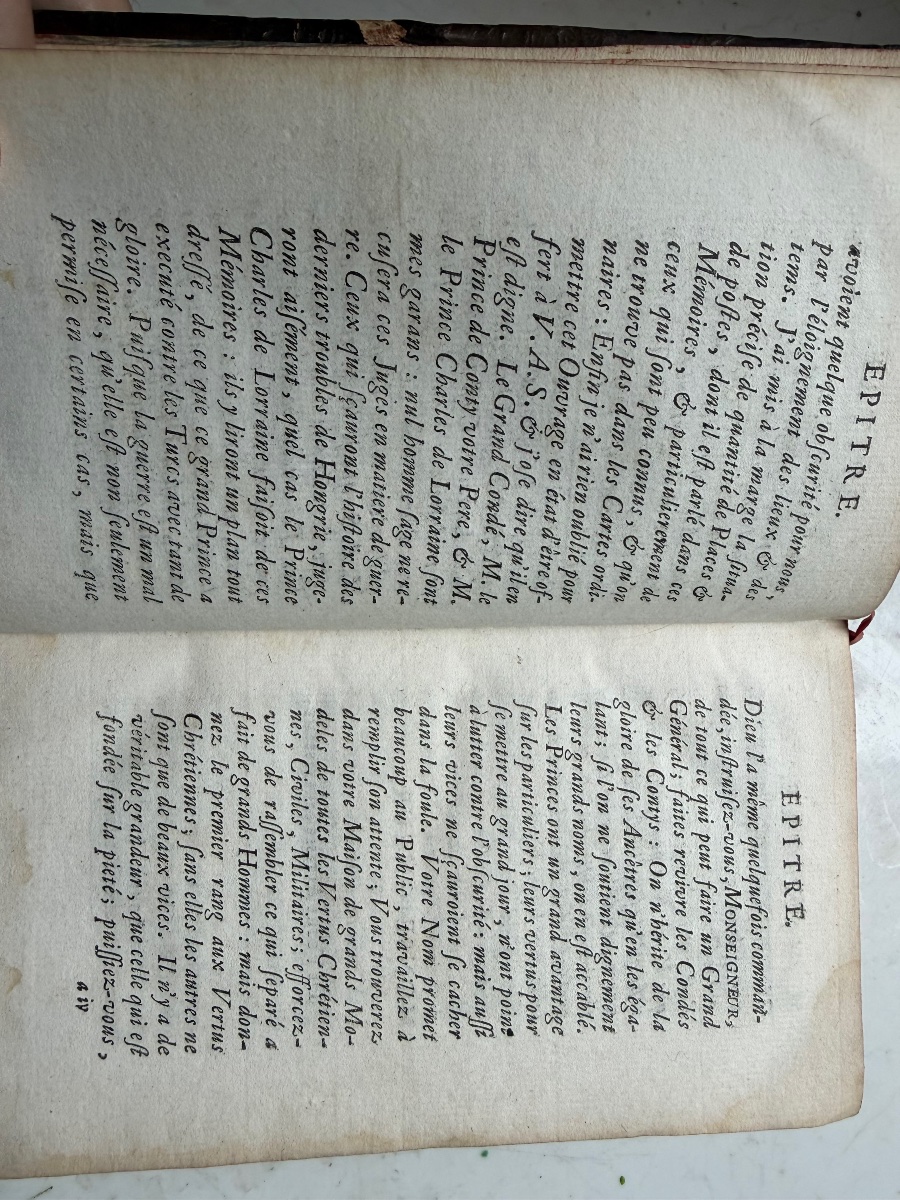 EPITRE.
avoient quelque obſcurité pour nous,
par l'éloignement des lieux & des
tems. J'ai mis à la marge la ſitua-
tion préciſe de quantité de Places &
de poſtes, dont il eſt parlé dans ces
Mémoires, & particulierement de
ceux qui ſont peu connus, & qu'on
ne trouve pas dans les Cartes ordi-
naires : Enfin je n'ai rien oublié pour
mettre cet Ouvrage en état d'être of-
fert à V. A. S. & j'oſe dire qu'il en
eſt digne. Le Grand Condé, M. le
Prince de Conty votre Pere, & M.
le Prince Charles de Lorraine ſont
mes garans : nul homme ſage ne re-
cuſera ces Juges en matiere de guer-
re. Ceux qui ſçauront l'hiſtoire des
derniers troubles de Hongrie, juge-
ront aiſément, quel cas le Prince
Charles de Lorraine faiſoit de ces
Mémoires : ils y liront un plan tout
dreſſé, de ce que ce grand Prince a
executé contre les Turcs avec tant de
gloire. Puiſque la guerre eſt un mal
néceſſaire, qu'elle eſt non ſeulement
permiſe en certains cas, mais que
EPITRE.
Dieu l'a même quelquefois comman-
dée, inſtruiſez-vous, MONSEIGNEUR,
de tout ce qui peut faire un Grand
Général; faites revivre les Condés
& les Contys : On n'hérite de la
gloire de ſes Ancêtres qu'en les éga-
lant; ſi l'on ne ſoutient dignement
leurs grands noms, on en eſt accablé.
Les Princes ont un grand avantage
ſur les particuliers; leurs vertus pour
ſe mettre au grand jour, n'ont point
à lutter contre l'obſcurité : mais auſſi
leurs vices ne ſçauroient ſe cacher
dans la foule. Votre Nom promet
beaucoup au Public, travaillez à
remplir ſon attente; Vous trouverez
dans votre Maiſon de grands Mo-
deles de toutes les Vertus Chrétien-
nes, Civiles, Militaires; efforcez-
vous de raſſembler ce qui ſeparé a
fait de grands Hommes : mais don-
nez le premier rang aux Vertus
Chrétiennes; ſans elles les autres ne
ſont que de beaux vices. Il n'y a de
véritable grandeur, que celle qui eſt
fondée ſur la pieté; puiſſiez-vous,
a iv